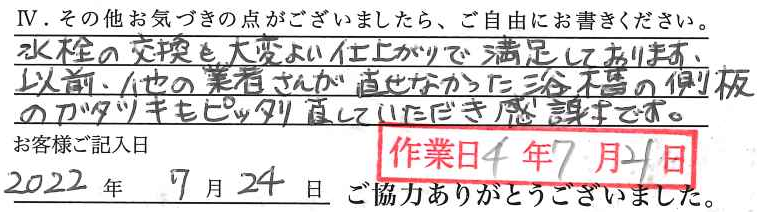 Ⅳ．その他お気づきの点がございましたら、ご自由にお書きください。
水栓の交換も大変よい仕上がりで満足しております。
以前、他の業者さんが直せなかった浴槽の側板
のガタツキもピッタリ直していただき感謝です。
お客様ご記入日
作業日 4 年 7 月 21 日
2022 年 7 月 24 日 ご協力ありがとうございました。